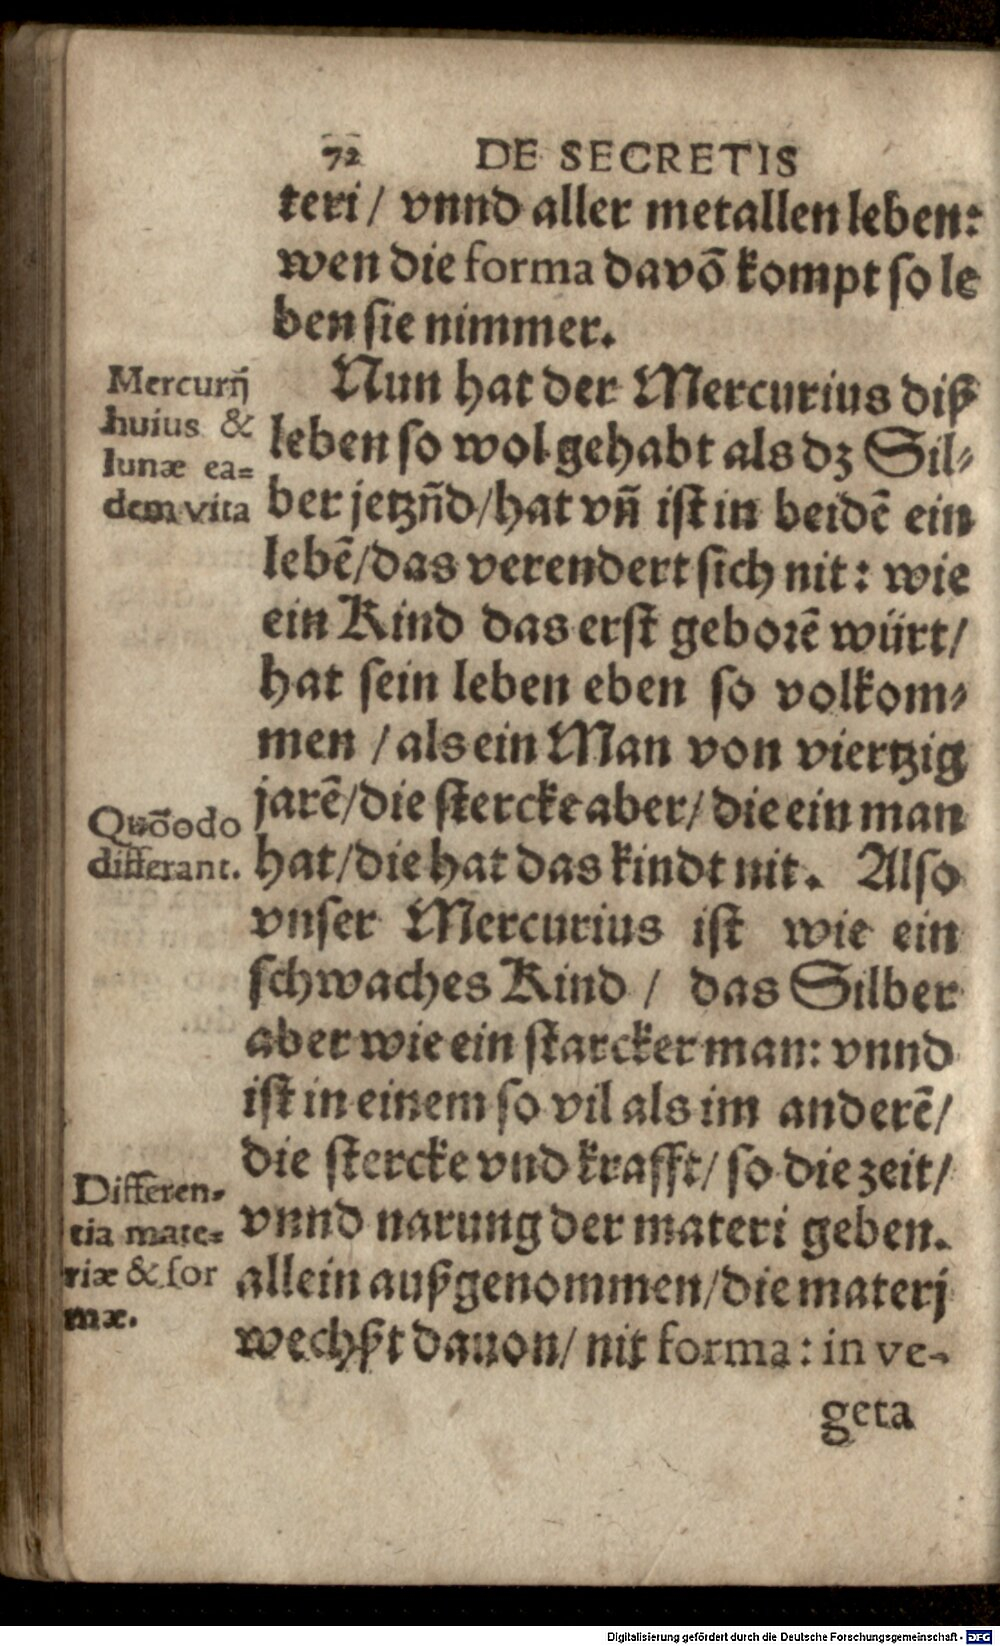 72 DE SECRETIS
teri / vnnd aller metallen leben:
wen die forma davõ kompt so le
ben sie nimmer.
Mercurij̃
huius &
lunæ ea=
dem vita
Nun hat der Mercurius diß
leben so wol gehabt als dz Sil-
ber jetzñd/hat vñ ist in beidẽ ein
lebẽ/das verendert sich nit: wie
ein Kind das erst geborẽ würt/
hat sein leben eben so volkom-
men / als ein Man von viertzig
jarẽ/die stercke aber/ die ein man
Quõodo
differant.
hat/die hat das kindt nit. Also
vnser Mercurius ist wie ein
schwaches Kind / das Silber
aber wie ein starcker man: vnnd
ist in einem so vil als im anderẽ/
die stercke vnd krafft/ so die zeit/
Differen-
tia mate=
riæ & for
mæ.
vnnd narung der materi geben.
allein außgenommen/die materj
wechßt dauon/ nit forma: in ve-
geta
Digitalisierung gefördert durch die Deutsche Forschungsgemeinschaft - DFG